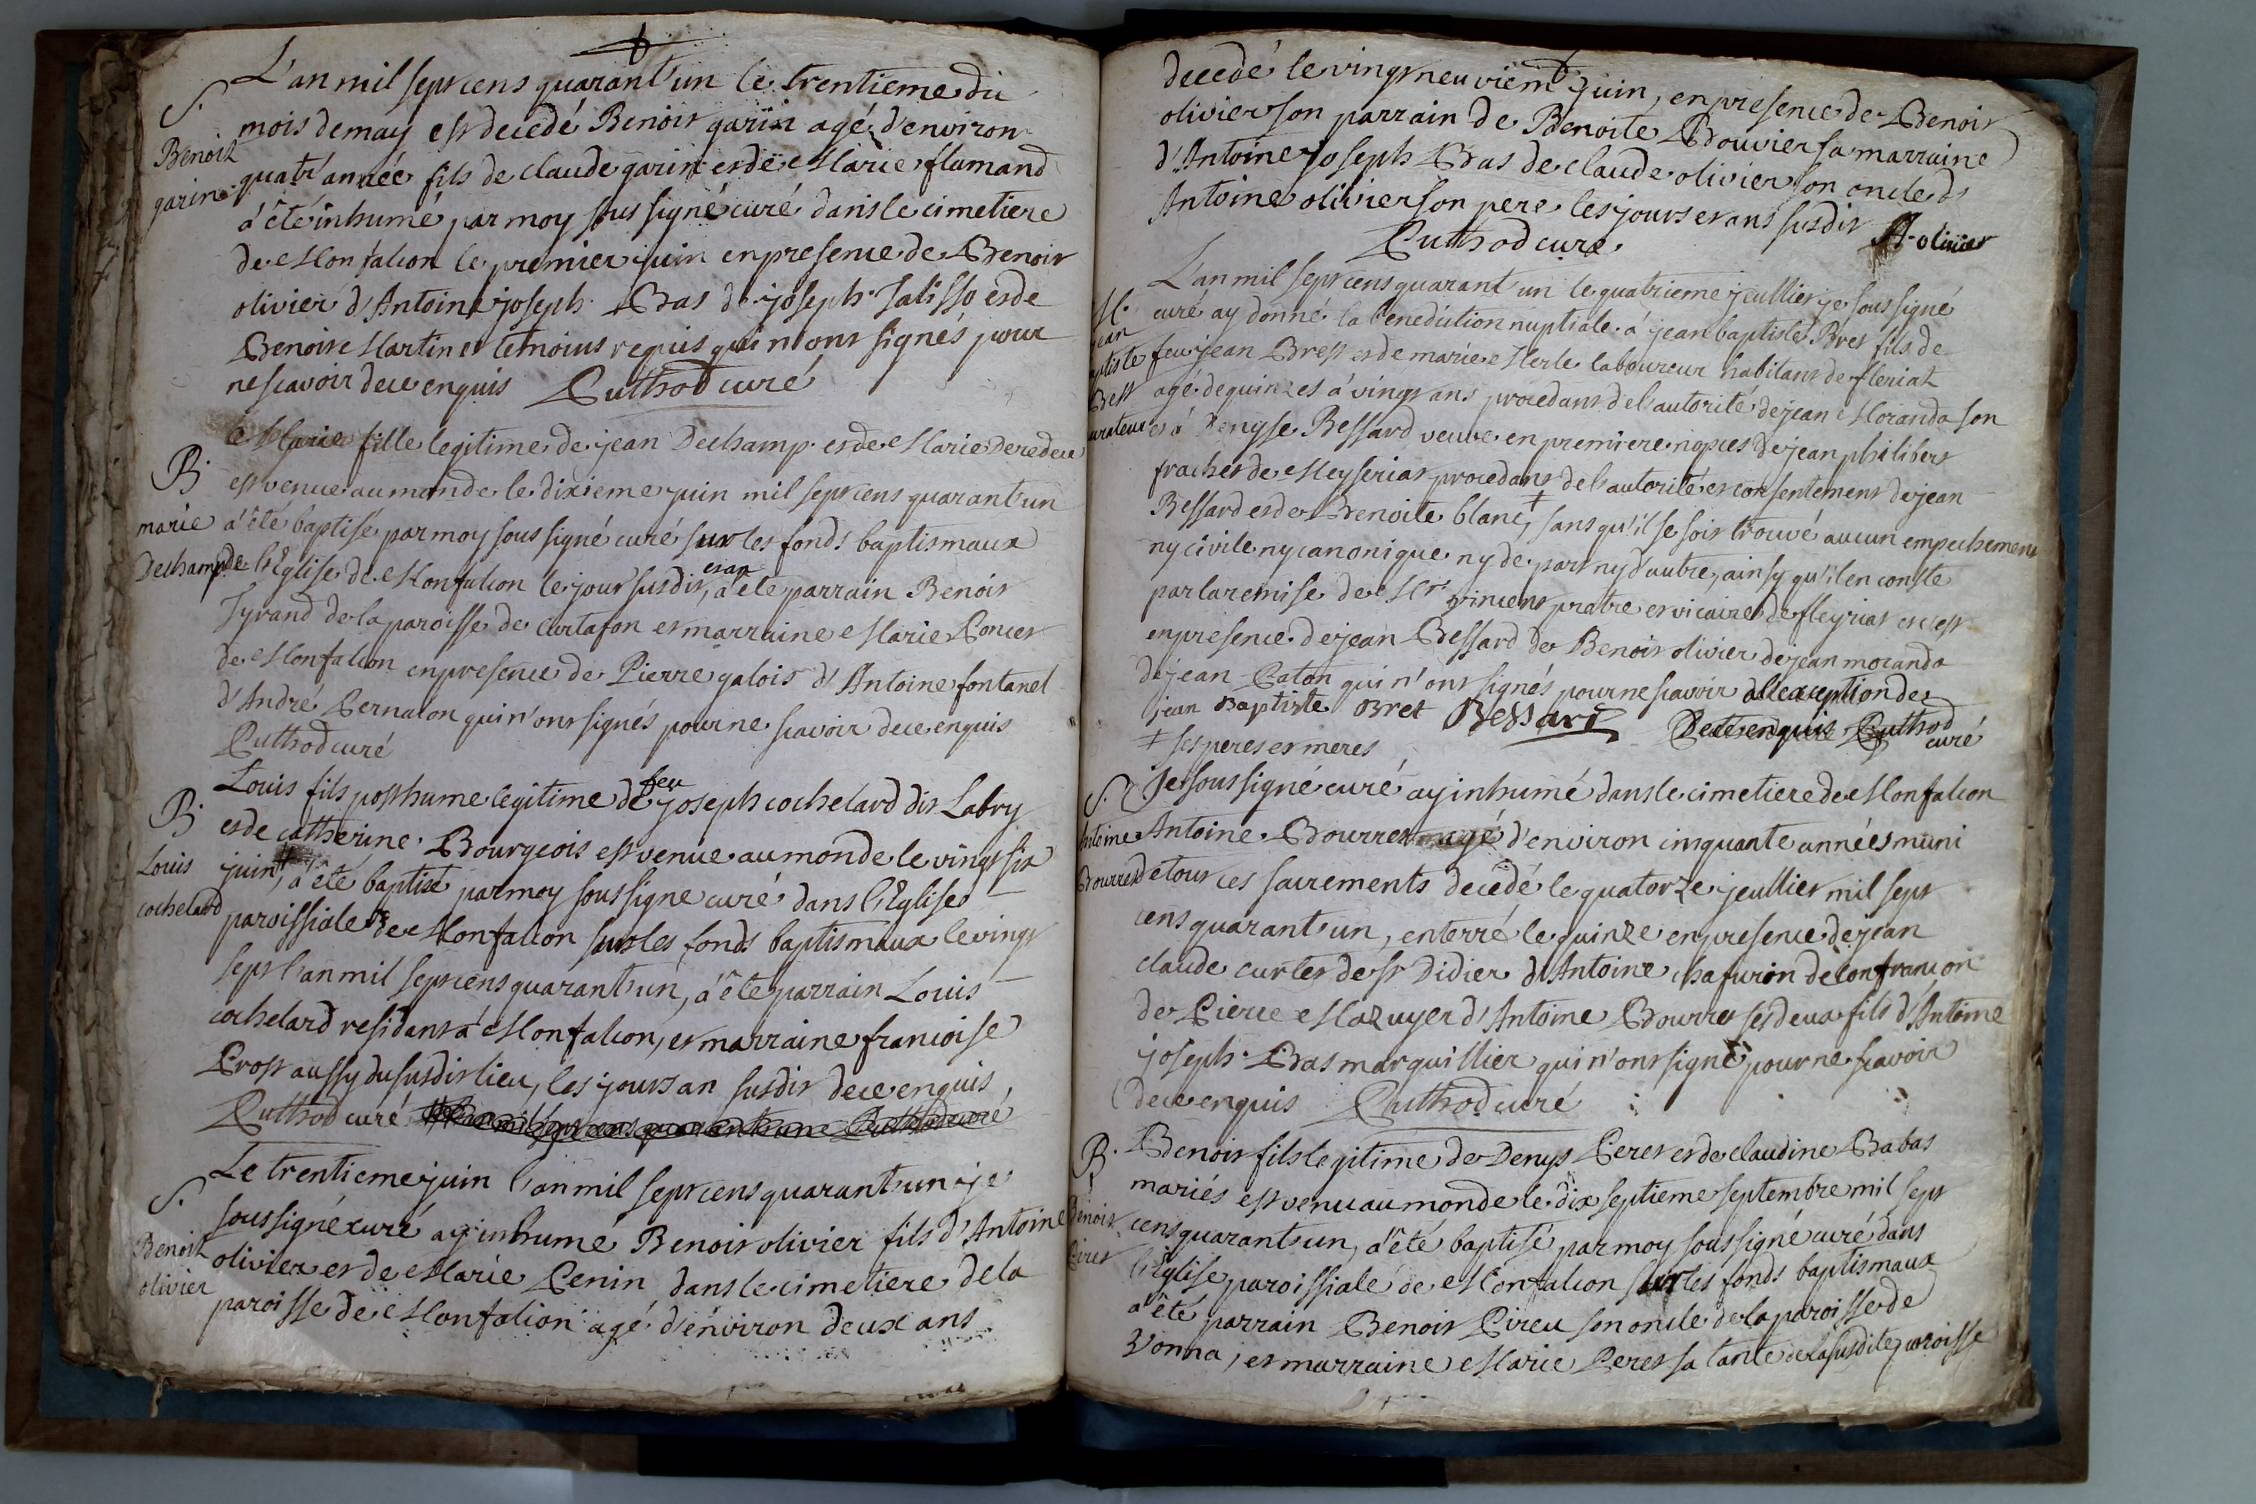 L'an mil sept cens quarant'un le trentieme du
S.
mois de may est decedé Benoit garin agé d'environ
Benoit
garin
quatr' année fils de claude garin et de Marie flamand
a été inhumé par moy sous signé curé dans le cimetiere
de Monfalcon le premier juin en presence de Benoit
olivier d'Antoine joseph Bas de joseph et de
Benoit Martin et temoins requis qui n'ont signés pour
ne scavoir de ce enquis Cuthod curé
Marie fille legitime de jean Dechamp et de Marie
B.
est venue au monde le dixieme juin mil sept cens quarant'un
marie
Dechamp
a été baptisé par moy sous signé curé sur les fonds baptismaux
de l'Eglise de Monfalcon le jour susdit, et an a été parrain Benoit
Tyrand de la paroisse de Curtafon et marraine Marie Poncet
de Monfalcon en presence de Pierre galois d'Antoine fontanel
d'André Pernalon qui n'ont signés pour ne scavoir de ce enquis
Cuthod curé
Louis fils posthume legitime de feu joseph cochelard dit Labry
B.
et de catherine Bourgeois est venue au monde le vingt six
Louis
cochelard
juin, a été baptisé par moy sous signe curé dans l'Eglise
paroissiale de Monfalcon sur les fonds baptismaux le vingt
sept l'an mil sept cens quarant'un, a été parrain Louis
cochelard residant a Monfalcon, et marraine francoise
Prost aussy du susdit lieu, les jours an susdit de ce enquis
Cuthod curé
Le trentieme juin l'an mil sept cens quarant'un je
S.
sous signé curé ay inhumé Benoit olivier fils d'Antoine
Benoit
olivier
olivier et de Marie Penin dans le cimetiere de la
paroisse de Monfalcon agé d'environ deux ans
decedé le vingt neuviem juin, en presence de Benoit
olivier son parrain de Benoite Bouvier sa marraine
d'Antoine joseph Bas de claude olivier son oncle d
Antoine olivier son pere les jours et ans susdit
Cuthod curé. A. olivier
L'an mil sept cens quarant'un le quatrieme jeullier je sous signé
M.
jean
curé ay donné la benediction nuptiale a jean baptiste Bret fils de
feu jean Bret et de marie Merle laboureur habitant de fleriat
Bret
agé de quinzes a vingt ans procedant de l'autorité de jean Moranda son
curateur et a Denyse Bessard veuve en premiere nopces de jean philibert
frachet de Meyseriat procedant de l'autorité et consentement de jean
Bessard et de Benoite blanc + sans qu'il se soit trouvé aucun empechement
ny civile ny canonique ny de part ny d'autre, ainsy qu'il en conste
par la remise de Mr. vincent pratre et vicaire de fleyriat et c'est
en presence de jean Bessard de Benoit olivier de jean moranda
de jean Caton qui n'ont signés pour ne scavoir a l'exception de
jean Baptiste Bret Bessard De ce enquis Cuthod
curé
+ ses peres et meres
Je sous signé curé ay inhumé dans le cimetiere de Monfalcon
S.
Antoine Antoine Bourret agé d'environ cinquante années muni
Bourret de tout ces sacrements decedé le quatorze jeullier mil sept
cens quarant'un, enterré le quinze en presence de jean
claude curtet de st Didier d'Antoine chafurin de confrancon
de Pierre Mazuyer d'Antoine Bourret ses deux fils d'Antoine
joseph Bas marguillier qui n'ont signé pour ne scavoir
de ce enquis Cuthod curé
Benoit fils legitime de Denys Peret et de claudine Babas
B.
mariés est venu au monde le dix septieme septembre mil sept
Benoit
cens quarant'un, a été baptisé par moy sous signé curé dans
l'Eglise paroissiale de Monfalcon sur les fonds baptismaux
a été parrain Benoit Pireu son oncle de la paroisse de
Vonna, et marraine Marie Peret sa tante de la susdite paroisse